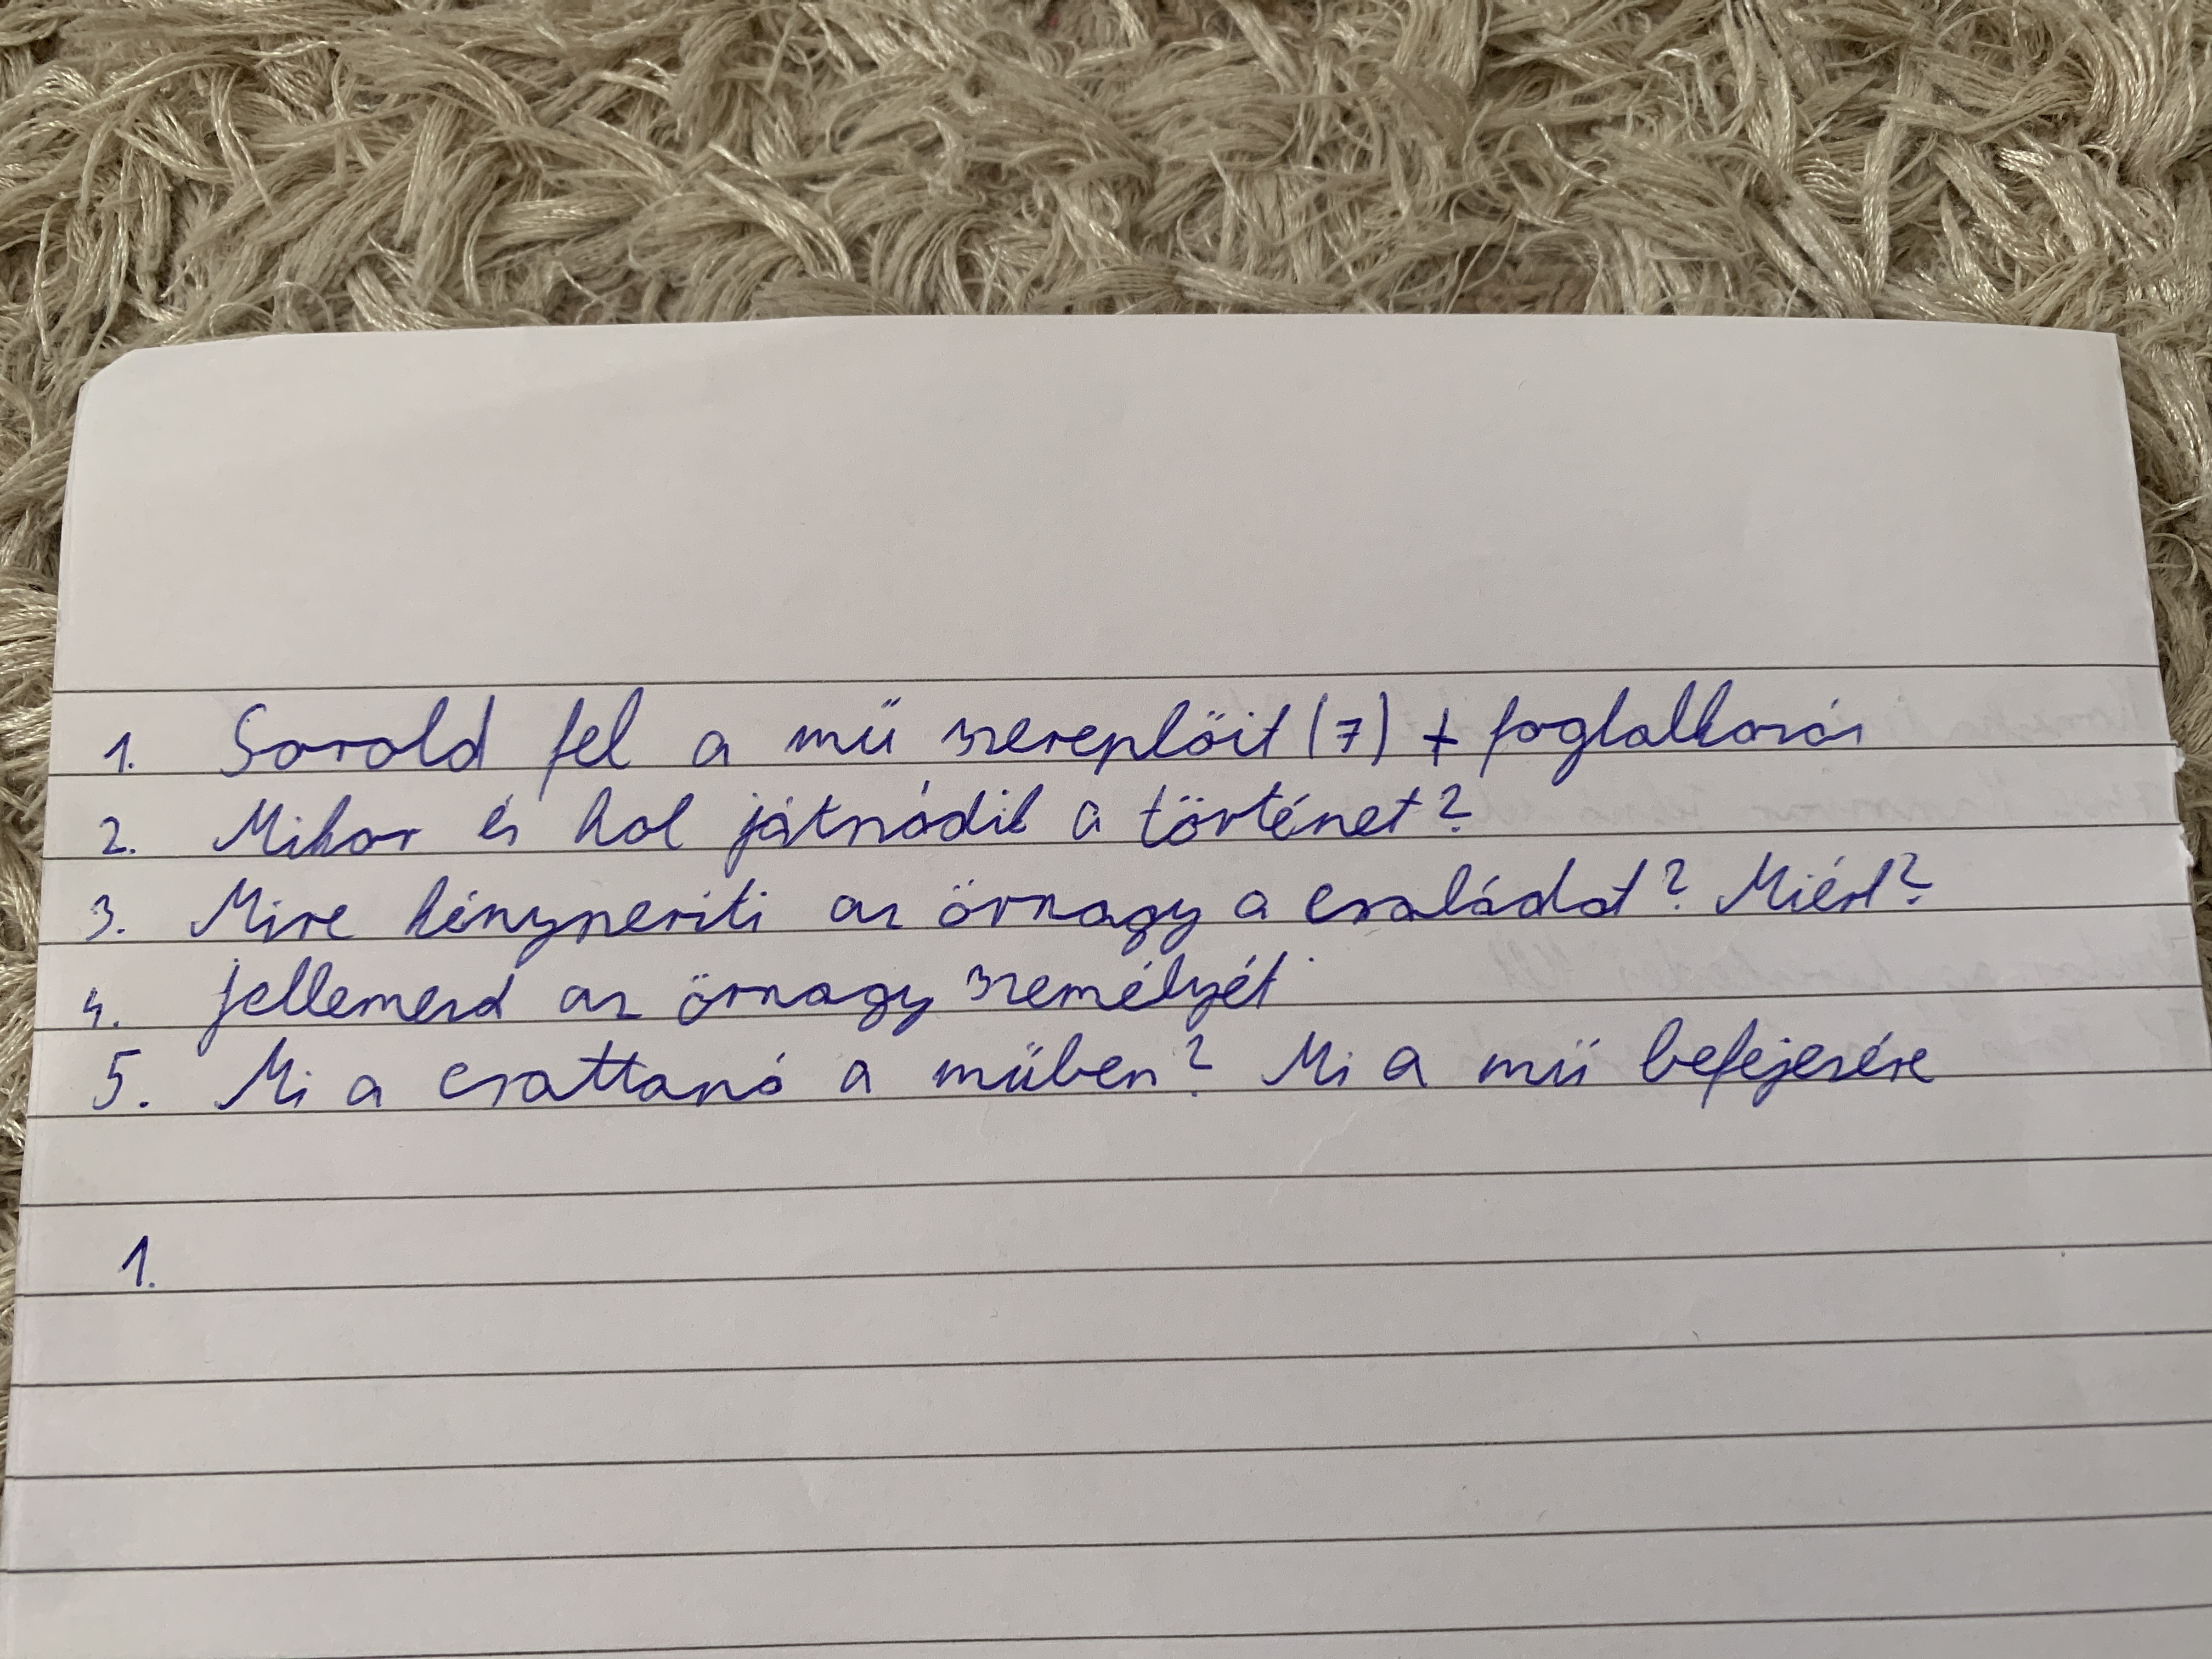 1. Sorold fel a mű szereplőit (7) + foglalkozás
2. Mikor és hol játszódik a történet?
3. Mire kényszeríti az őrnagy a családot? Miért?
4. Jellemezd az őrnagy személyét
5. Mi a csattanó a műben? Mi a mű befejezése
1.